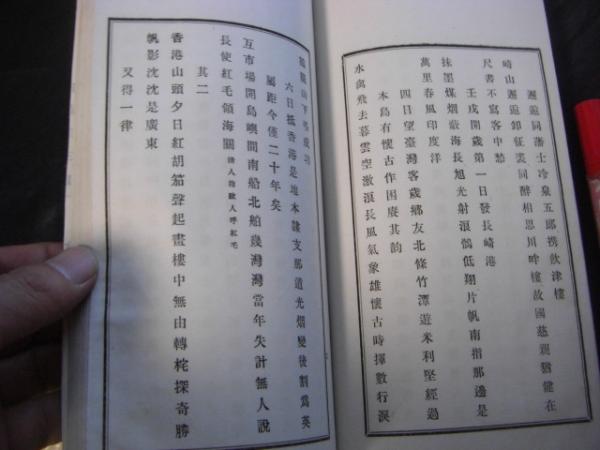 邂逅同藩士冷泉五郎携飲津樓
崎山邂逅卸征裘同酔相思川畔樓故國慈親猶健在
尺書不寫客中愁
壬戌開歲第一日發長崎港
抹墨煤烟蔽海長旭光射浪鶻低翔片帆南指那邊是
萬里春風印度洋
四日望臺灣客歲鄉友北條竹潭遊米利堅經過
本島有懷古作因賡其韵
水禽飛去暮雲空激浪長風氣象雄懷古時揮數行淚
山下
六日抵香港是地本隸支那道光烟變後割爲英
屬距今僅二十年矣
互市場開島嶼間南船北舶幾灣灣當年失計無人說
長使紅毛領海關清人指歐人呼紅毛
其二
香港山頭夕日紅胡笳聲起畫樓中無由轉柁探奇勝
帆影沈沈是廣東
又得一律